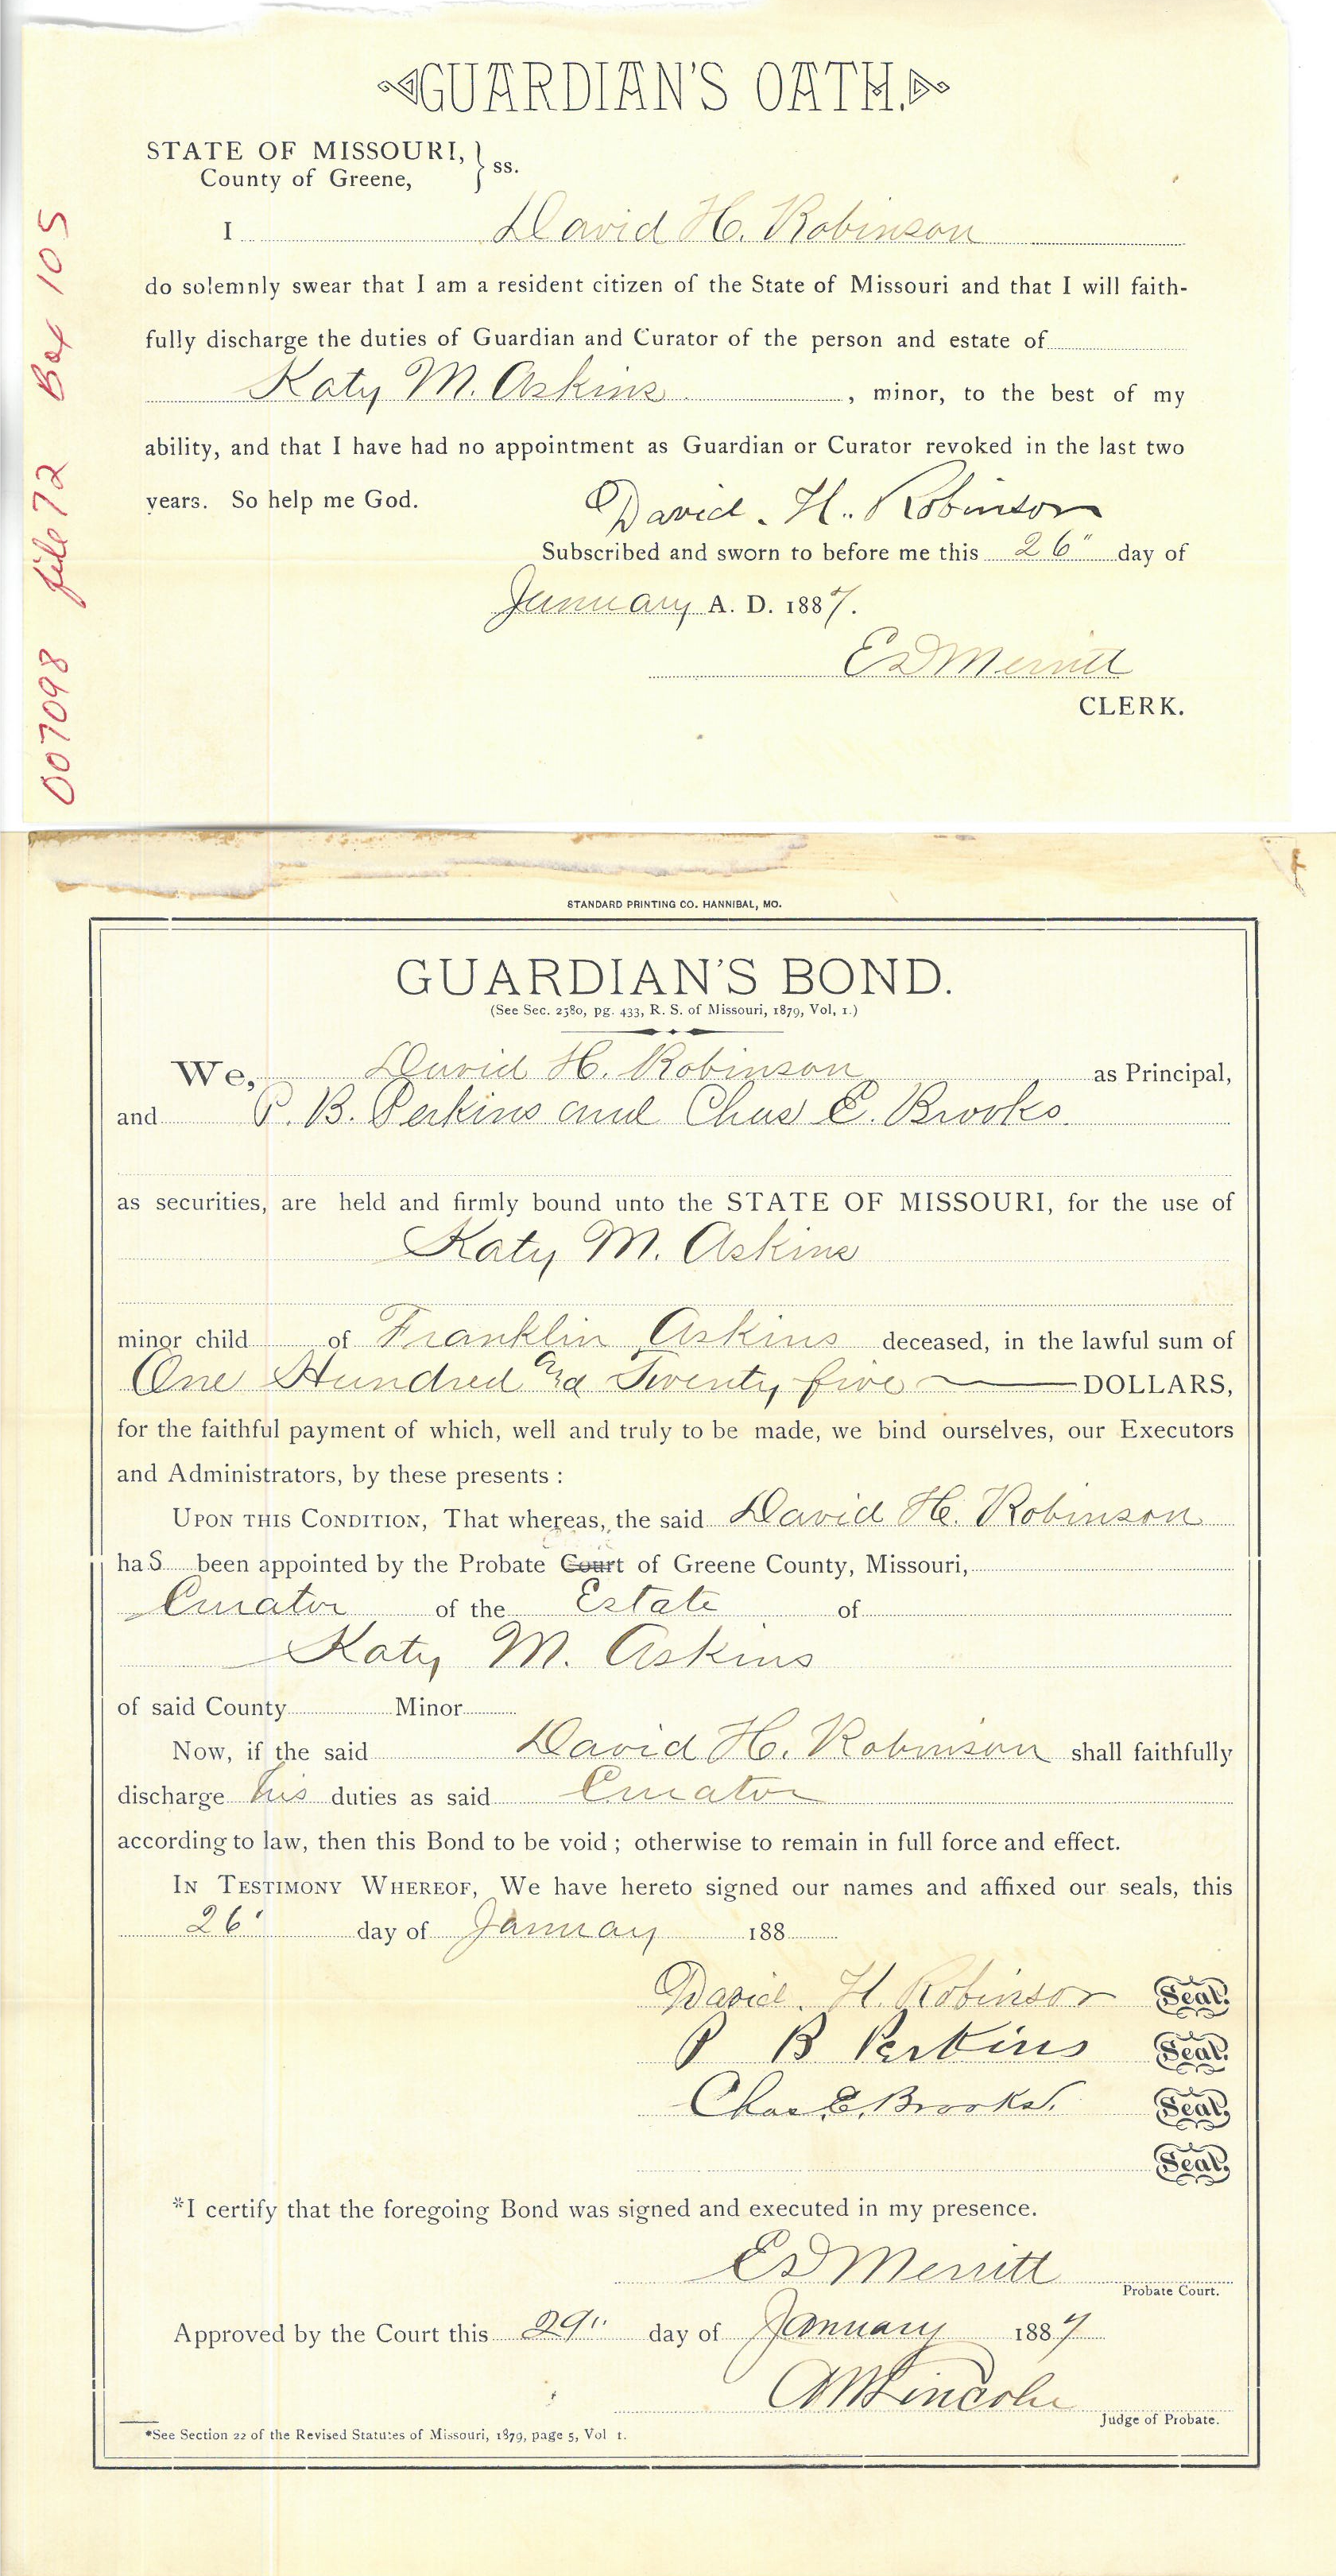 GUARDIAN'S OATH.
STATE OF MISSOURI, } ss.
County of Greene,
I David H. Robinson
do solemnly swear that I am a resident citizen of the State of Missouri and that I will faith-
fully discharge the duties of Guardian and Curator of the person and estate of
Katy M. Askins, minor, to the best of my
ability, and that I have had no appointment as Guardian or Curator revoked in the last two
years. So help me God. David. H. Robinson
Subscribed and sworn to before me this 26" day of
January A. D. 1887.
ED Merritt
CLERK.
007098 file 72 Box 105
STANDARD PRINTING CO. HANNIBAL, MO.
GUARDIAN'S BOND.
(See Sec. 2580, pg. 433, R. S. of Missouri, 1879, Vol, 1.)
We, David H. Robinson as Principal,
and P. B. Perkins and Chas E. Brooks.
as securities, are held and firmly bound unto the STATE OF MISSOURI, for the use of
Katy M. Askins
minor child of Franklin Askins deceased, in the lawful sum of
One Hundred and Twenty five DOLLARS,
for the faithful payment of which, well and truly to be made, we bind ourselves, our Executors
and Administrators, by these presents :
UPON THIS CONDITION, That whereas, the said David H. Robinson
has been appointed by the Probate Court of Greene County, Missouri,
Curator of the Estate of
Katy M. Askins
of said County Minor
Now, if the said David H. Robinson shall faithfully
discharge his duties as said Curator
according to law, then this Bond to be void ; otherwise to remain in full force and effect.
IN TESTIMONY WHEREOF, We have hereto signed our names and affixed our seals, this
26" day of January 188
David. H. Robinson Seal.
P B Perkins Seal.
Chas E. Brooks. Seal.
Seal.
*I certify that the foregoing Bond was signed and executed in my presence.
ED Merritt
Probate Court.
Approved by the Court this 29" day of January 1887
AM Lincoln
Judge of Probate.
*See Section 22 of the Revised Statutes of Missouri, 1879, page 5, Vol 1.